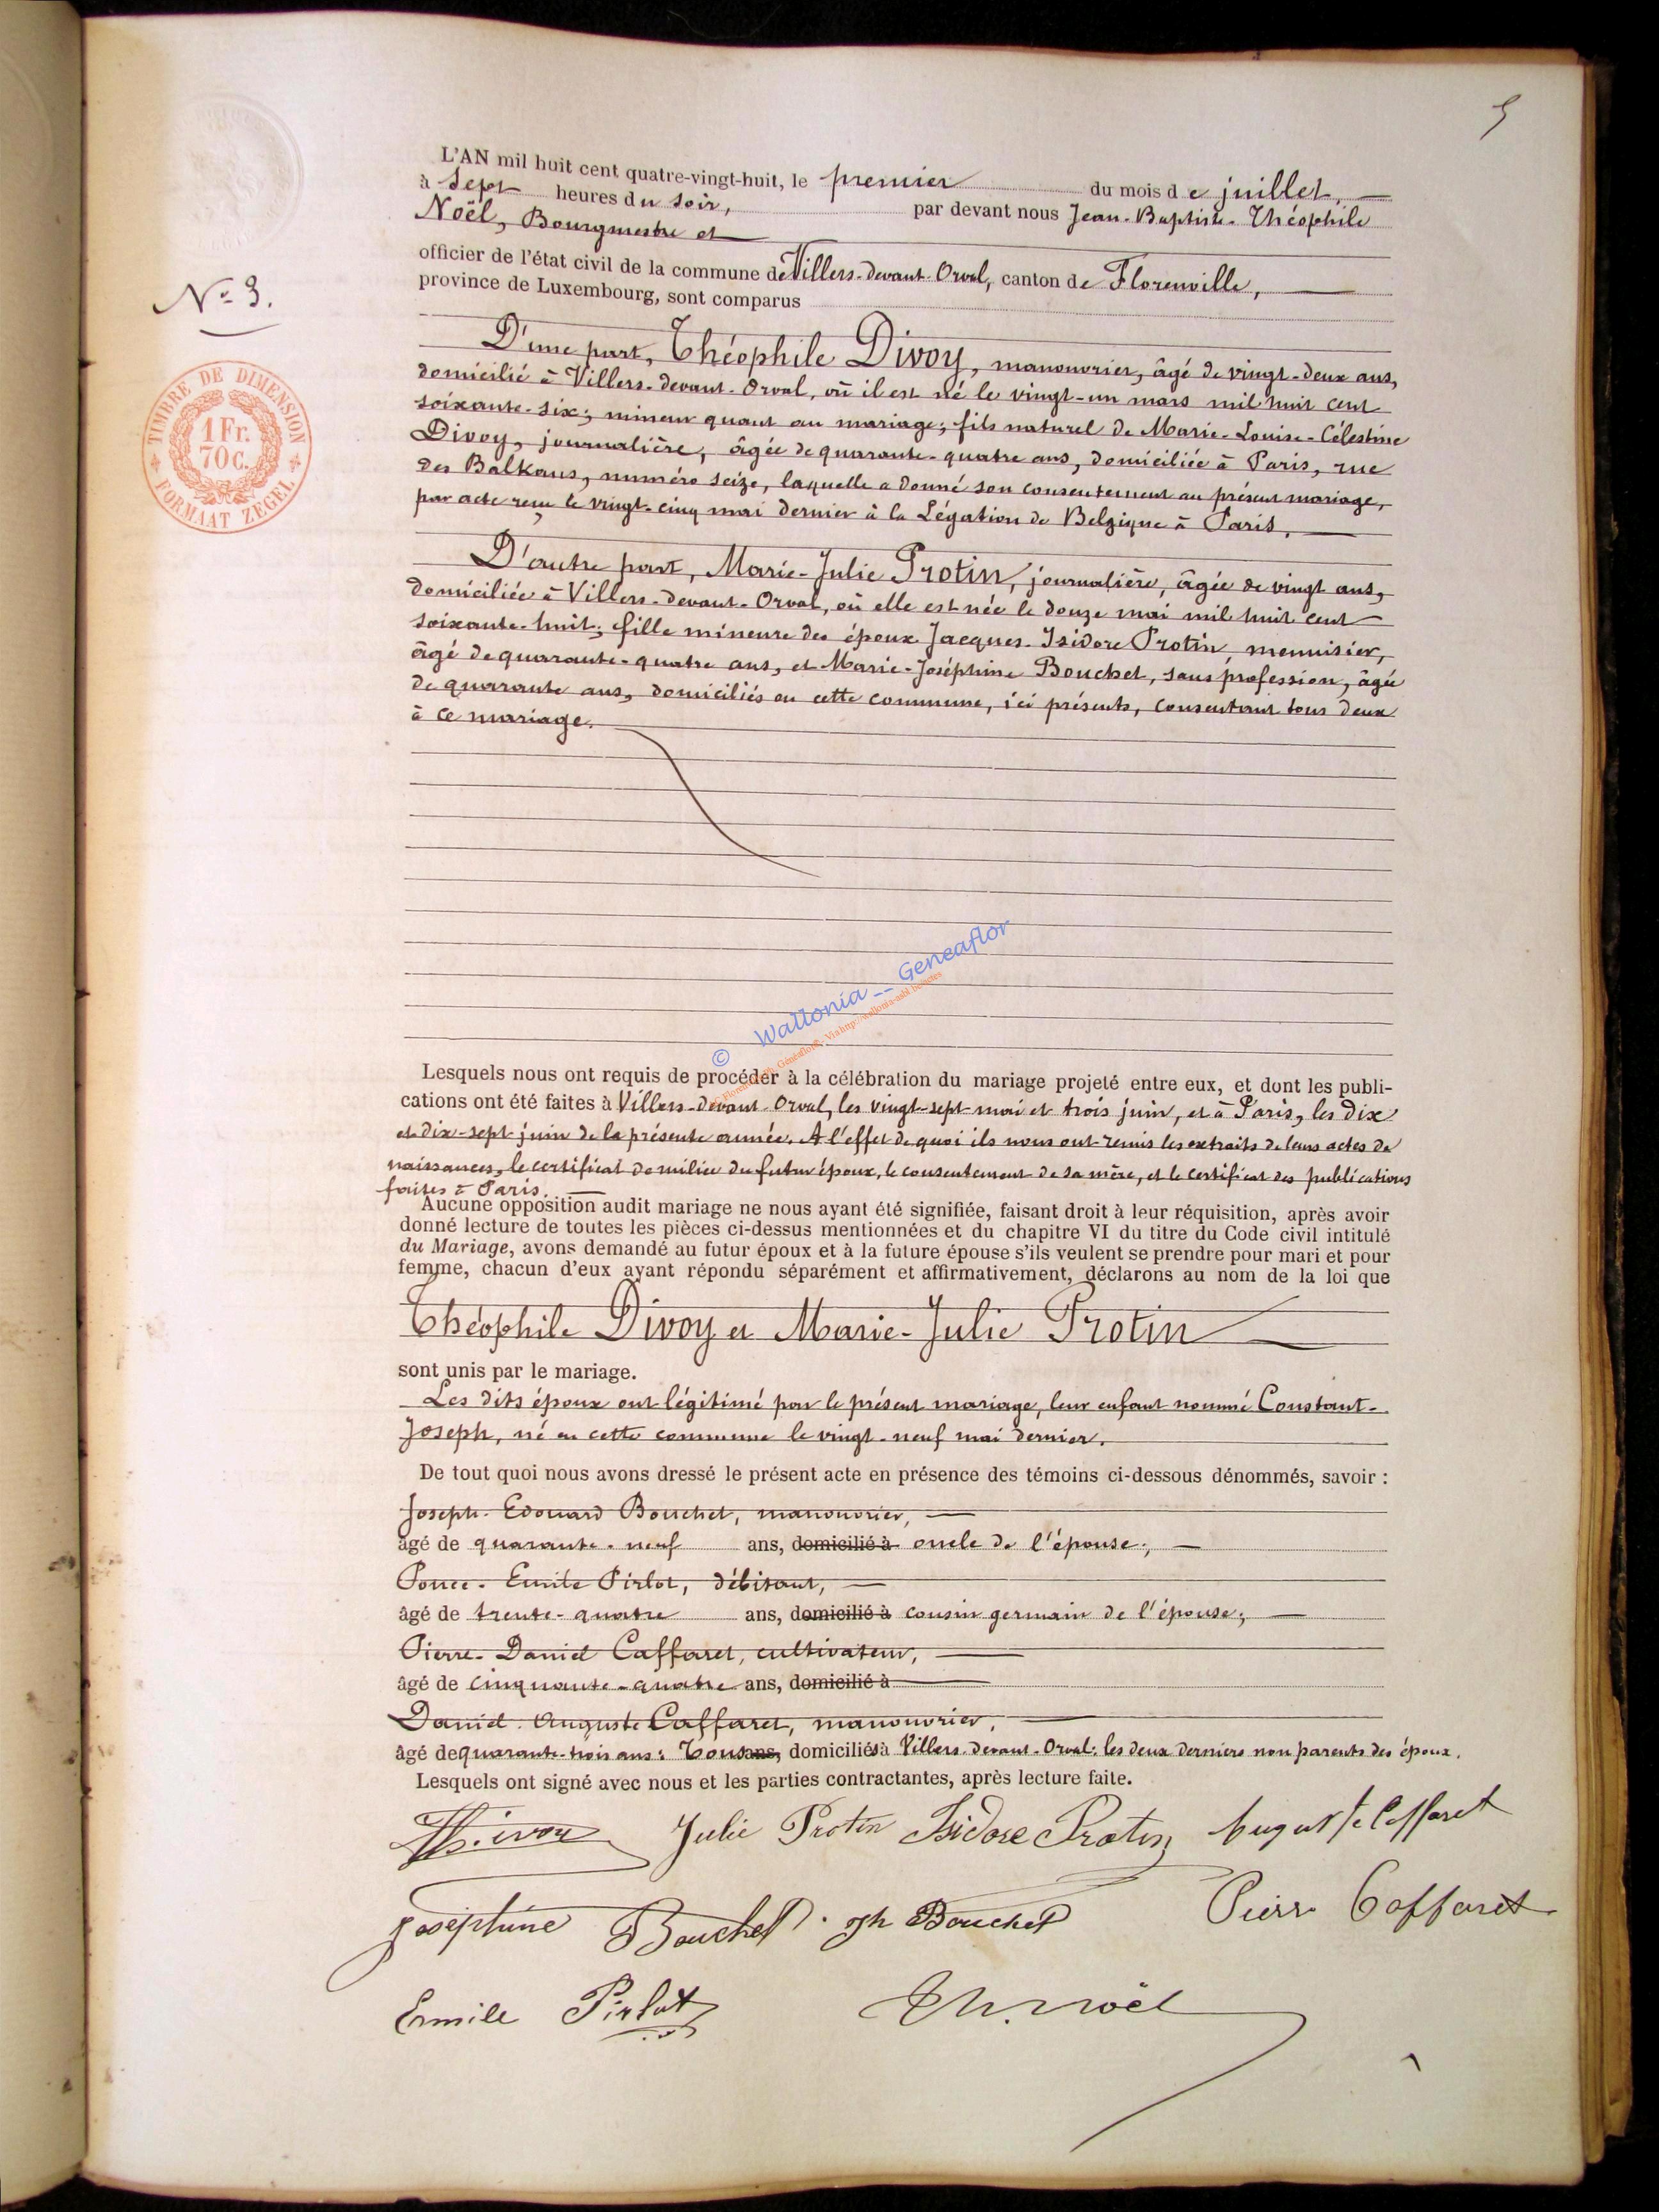 5
L'AN mil huit cent quatre-vingt-huit, le premier du mois de juillet,
à sept heures du soir, par devant nous Jean-Baptiste-Théophile
Noël, Bourgmestre et
officier de l'état civil de la commune de Villers-devant-Orval, canton de Florenville,
province de Luxembourg, sont comparus
N° 3.
TIMBRE DE DIMENSION
1 Fr.
70 C.
FORMAAT ZEGEL
D'une part, Théophile Divoy, manouvrier, âgé de vingt-deux ans,
domicilié à Villers-devant-Orval, où il est né le vingt-un mars mil huit cent
soixante-six; mineur quant au mariage; fils naturel de Marie-Louise-Célestine
Divoy, journalière, âgée de quarante-quatre ans, domiciliée à Paris, rue
des Balkans, numéro seize, laquelle a donné son consentement au présent mariage,
par acte reçu le vingt-cinq mai dernier à la Légation de Belgique à Paris.
D'autre part, Marie-Julie Protin, journalière, âgée de vingt ans,
domiciliée à Villers-devant-Orval, où elle est née le douze mai mil huit cent
soixante-huit; fille mineure des époux Jacques-Isidore Protin, menuisier,
âgé de quarante-quatre ans, et Marie-Joséphine Bouchet, sans profession, âgée
de quarante ans, domiciliés en cette commune, ici présents, consentant tous deux
à ce mariage.
© Wallonia -- Geneaflor
Lesquels nous ont requis de procéder à la célébration du mariage projeté entre eux, et dont les publi-
cations ont été faites à Villers-devant-Orval, les vingt-sept mai et trois juin, et à Paris, les dix
et dix-sept juin de la présente année. A l'effet de quoi ils nous ont remis les extraits de leurs actes de
naissances, le certificat de milice du futur époux, le consentement de sa mère, et le certificat des publications
faites à Paris.
Aucune opposition audit mariage ne nous ayant été signifiée, faisant droit à leur réquisition, après avoir
donné lecture de toutes les pièces ci-dessus mentionnées et du chapitre VI du titre du Code civil intitulé
du Mariage, avons demandé au futur époux et à la future épouse s'ils veulent se prendre pour mari et pour
femme, chacun d'eux ayant répondu séparément et affirmativement, déclarons au nom de la loi que
Théophile Divoy et Marie-Julie Protin
sont unis par le mariage.
Les dits époux ont légitimé par le présent mariage, leur enfant nommé Constant-
Joseph, né en cette commune le vingt-neuf mai dernier.
De tout quoi nous avons dressé le présent acte en présence des témoins ci-dessous dénommés, savoir :
Joseph-Edouard Bouchet, manouvrier,
âgé de quarante-neuf ans, domicilié à oncle de l'épouse;
Ponce-Emile Pirlot, débitant,
âgé de trente-quatre ans, domicilié à cousin germain de l'épouse;
Pierre-Daniel Caffaret, cultivateur,
âgé de cinquante-quatre ans, domicilié à
Daniel-Auguste Caffaret, manouvrier,
âgé de quarante-trois ans: Tous ans, domiciliés à Villers-devant-Orval: les deux derniers non parents des époux.
Lesquels ont signé avec nous et les parties contractantes, après lecture faite.
Th. Divoy Julie Protin Isidore Protin Auguste Caffaret
Joséphine Bouchet Jph Bouchet Pierre Caffaret
Emile Pirlot Th. Noël